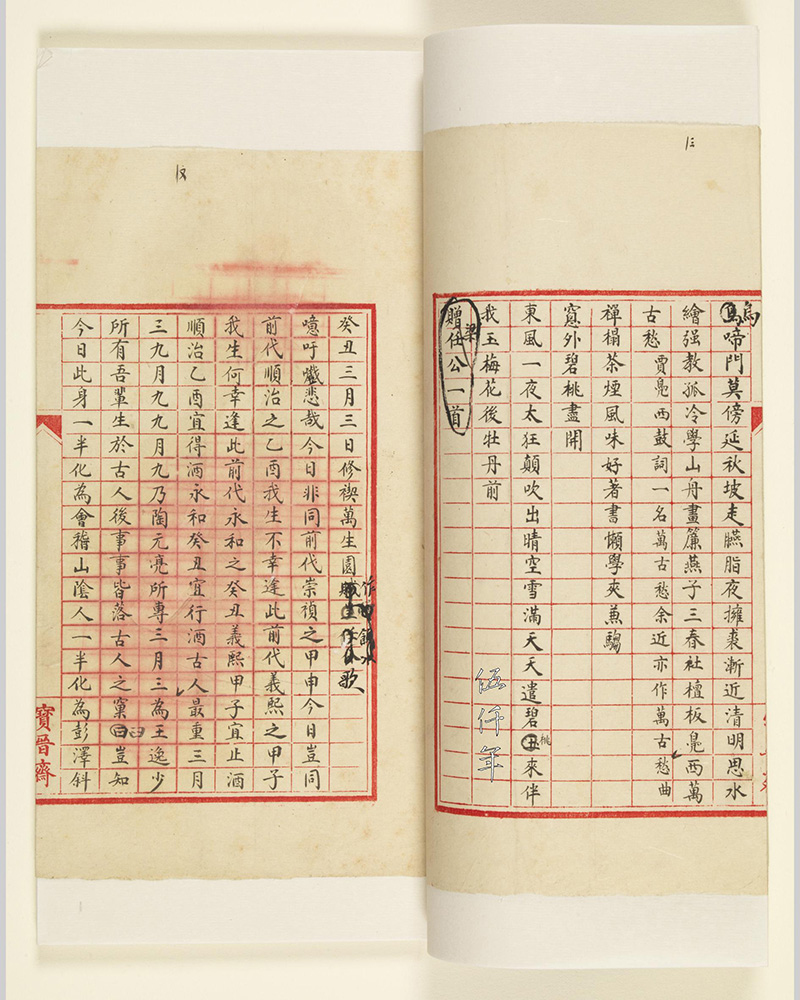 烏啼門莫傍延秋坡走臙脂夜擁裘漸近清明思水
繪强教孤冷學山舟畫簾燕子三春社檀板鳧西萬
古愁 賈鳧西鼓詞一名萬古愁余近亦作萬古愁曲
禪榻茶煙風味好著書懶學夾蒹騶
窻外碧桃盡開
東風一夜太狂顛吹出晴空雪滿天天遣碧桃來伴
我玉梅花後牡丹前
伍仟年
贈梁任公一首
癸丑三月三日修禊萬生園作歌
噫吁嚱悲哉今日非同前代崇禎之甲申今日豈同
前代順治之乙酉我生不幸逢此前代義熙之甲子
我生何幸逢此前代永和之癸丑義熙甲子宜止酒
順治乙酉宜得酒永和癸丑宜行酒古人最重三月
三九月九九月九乃陶元亮所專三月三為王逸少
所有吾輩生於古人後事事皆落古人之窠臼豈知
今日此身一半化為會稽山陰人一半化為彭澤斜
寶晉齋